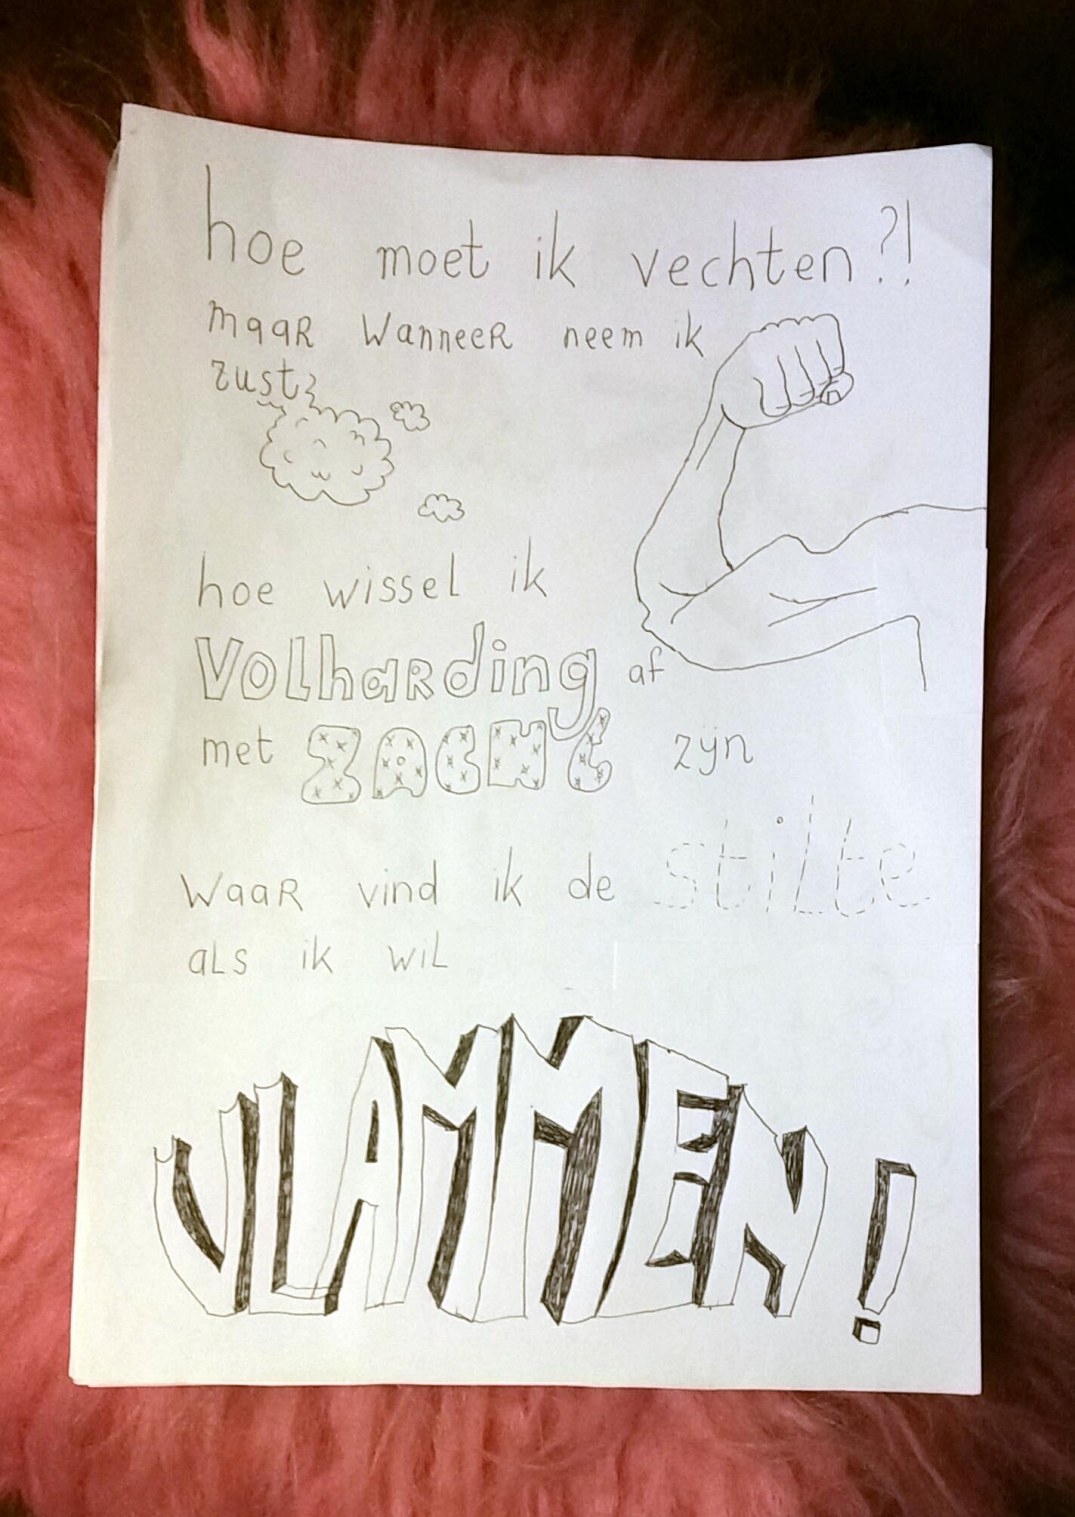 hoe moet ik vechten?!
maar wanneer neem ik
rust?
hoe wissel ik
Volharding af
met ZACHT zijn
waar vind ik de stilte
als ik wil
VLAMMEN!